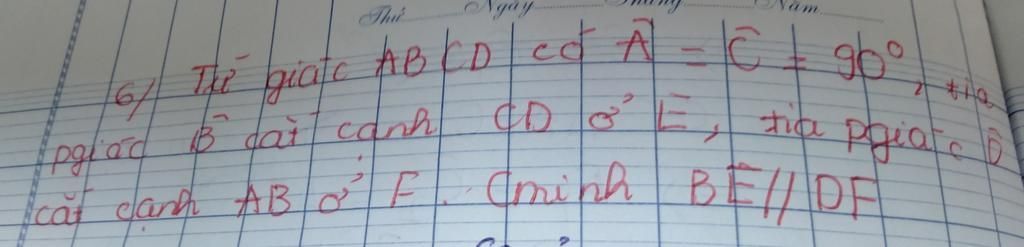 Thứ Ngày Tháng Năm
6/ Tứ giác ABCD có Â = Ĉ = 90°, tia
pgiác B̂ cắt cạnh CD ở E, tia pgiác D̂
cắt cạnh AB ở F. Cminh BE // DF